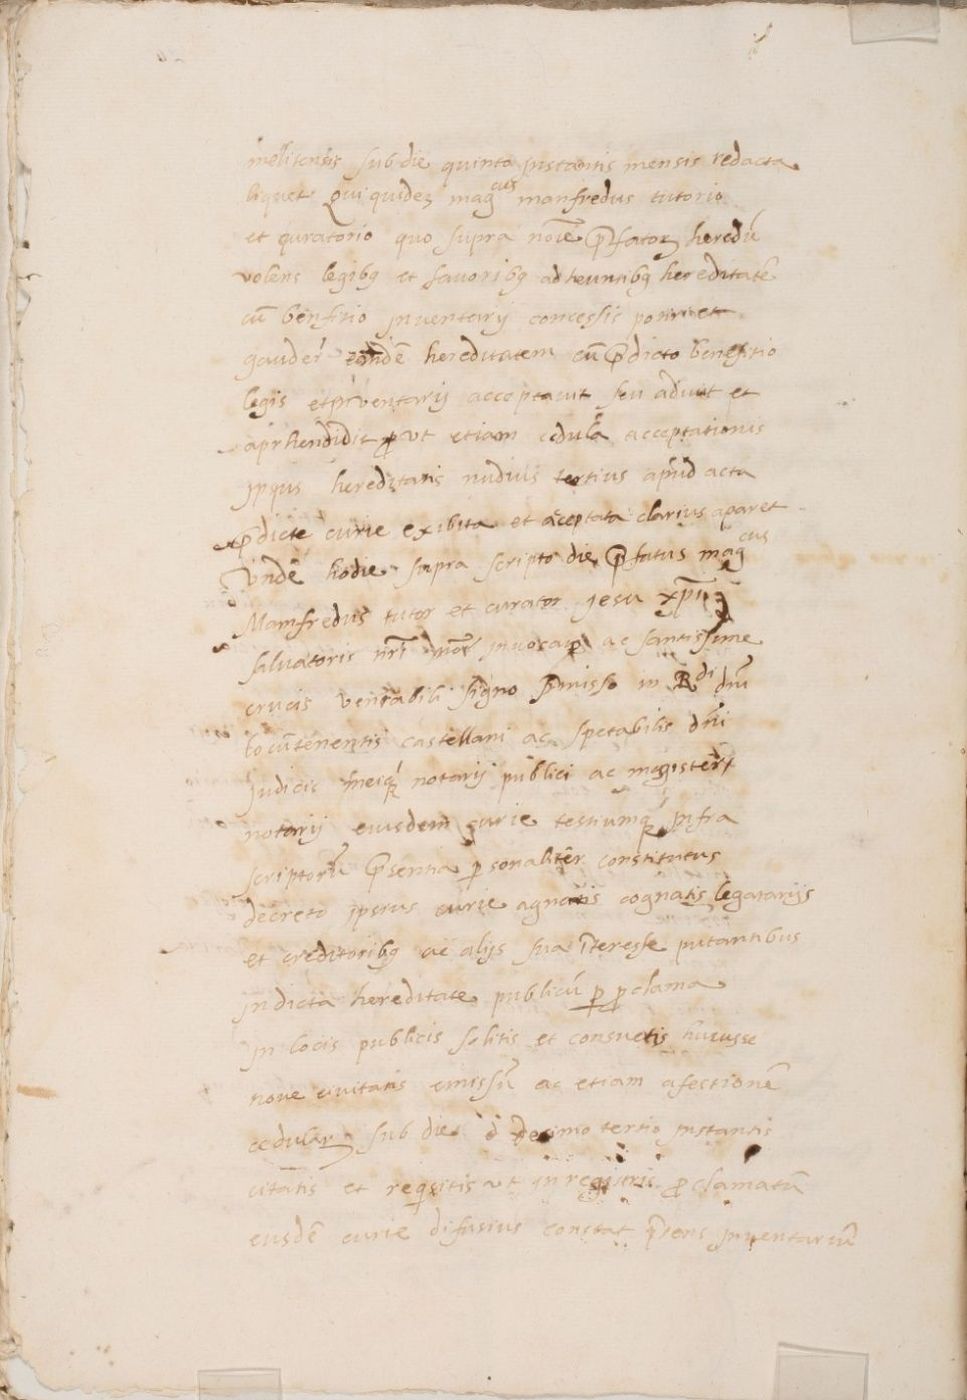 melitensis sub die quinto instantis mensis redacta
liquet Qui quidez mag.cus manfredus tutorio
et quratorio quo supra noie p̄fatoꝝ heredū
volens legibꝫ et favoribꝫ adheuntibꝫ hereditatē
cū benfitio jnventarij concessis potiri et
gauder eandē hereditatem cū p̄dicto benefitio
legis et jnventarij acceptavit seu advit et
aprhendidit ꝓut etiam cedula acceptationis
hereditatis nudius tertius apud acta
p̄dicte curie exibita et aceptata clarius aparet
Vnde hodie supra scripto die p̄fatus mag.cus
Manfredus tutor et curator jesu xp̄i
salvatoris nr̄i ac santissime
crucis venrabili signo p̄misso in R.di dn̄i
locūtenentis castellani ac spetabilis dn̄i
Judicis meiqꝫ notarij publici ac magistri
notarij eiusdem curie testiumqꝫ jnfra
scriptorū p̄sentia ꝑsonalitēr constitutus
decreto jpsius curie agnatis cognatis legatarijs
et creditoribꝫ ac alijs sua īteresse putantibus
jn dicta hereditate publicū ꝑ ꝓclama
jn locis publicis solitis et consuetis huiusse
nove civitatis emissū ac etiam afectionē
cedularꝝ sub die decimo tertio jnstantis
citatis et reqisitis ut jn registris ꝓclamatū
eiusdē curie difusius constat p̄sens jnventariū